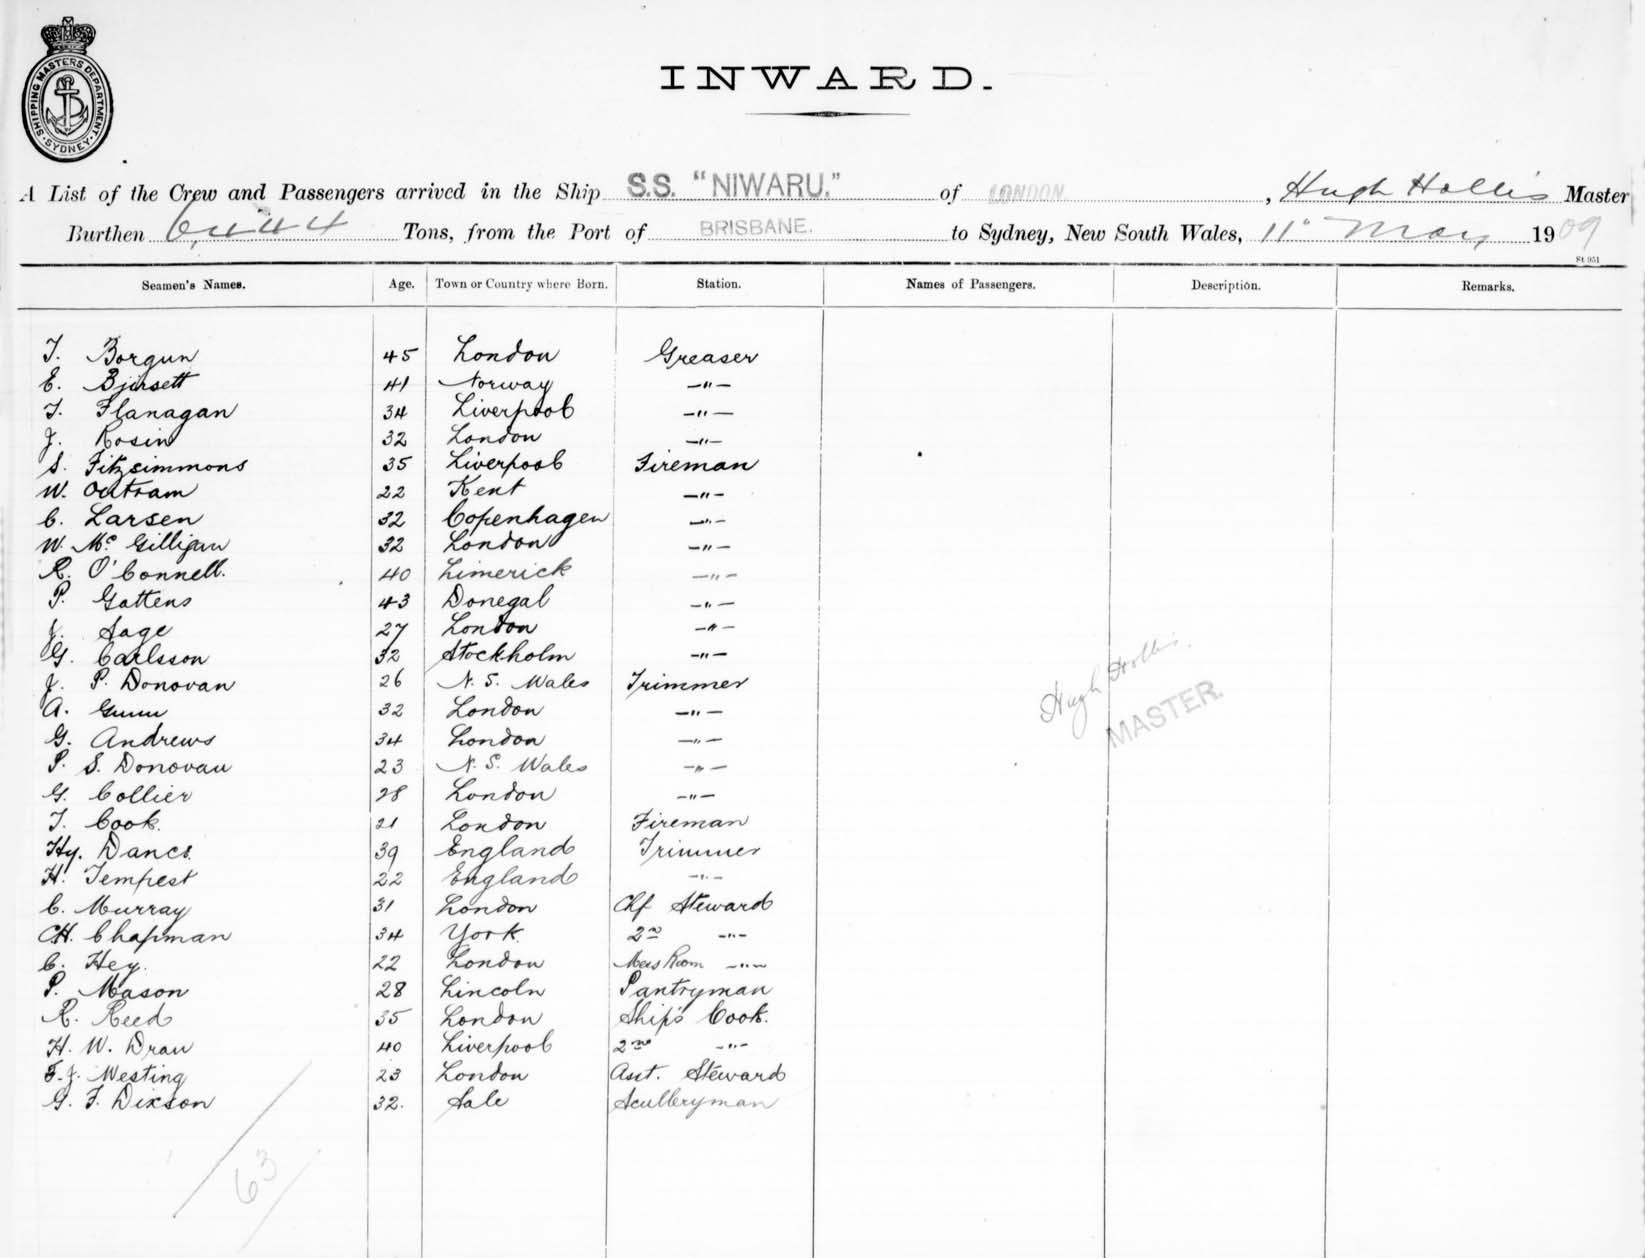 SHIPPING MASTERS DEPARTMENT
SYDNEY
INWARD.
A List of the Crew and Passengers arrived in the Ship S.S. "NIWARU." of LONDON, Hugh Hollis Master
Burthen 6,444 Tons, from the Port of BRISBANE. to Sydney, New South Wales, 11" May 1909
St 951
Seamen's Names. Age. Town or Country where Born. Station. Names of Passengers. Description. Remarks.
T. Borgun 45 London Greaser
E. Bjorsett 41 Norway —"—
T. Flanagan 34 Liverpool —"—
J. Rosin 32 London —"—
S. Fitzsimmons 35 Liverpool Fireman
W. Outram 22 Kent —"—
C. Larsen 32 Copenhagen —"—
W. Mc Gilligan 32 London —"—
R. O'Connell. 40 Limerick —"—
P. Gattens 43 Donegal —"—
J. Sage 27 London —"—
G. Carlsson 32 Stockholm —"—
J. P. Donovan 26 N. S. Wales Trimmer
A. Gunn 32 London —"—
G. Andrews 34 London —"—
P. S. Donovan 23 N. S. Wales —"—
G. Collier 28 London —"—
T. Cook. 21 London Fireman
Hy. Dancs. 39 England Trimmer
H. Tempest 22 England —"—
C. Murray 31 London Chf Steward
CH. Chapman 34 York 2nd —"—
C. Hey. 22 London Mess Room —"—
P. Mason 28 Lincoln Pantryman
R. Reed 35 London Ship's Cook.
H. W. Dran 40 Liverpool 2nd —"—
F. J. Westing 23 London Asst. Steward
G. F. Dixson 32. Sale Sculleryman
Hugh Hollis.
MASTER.
63